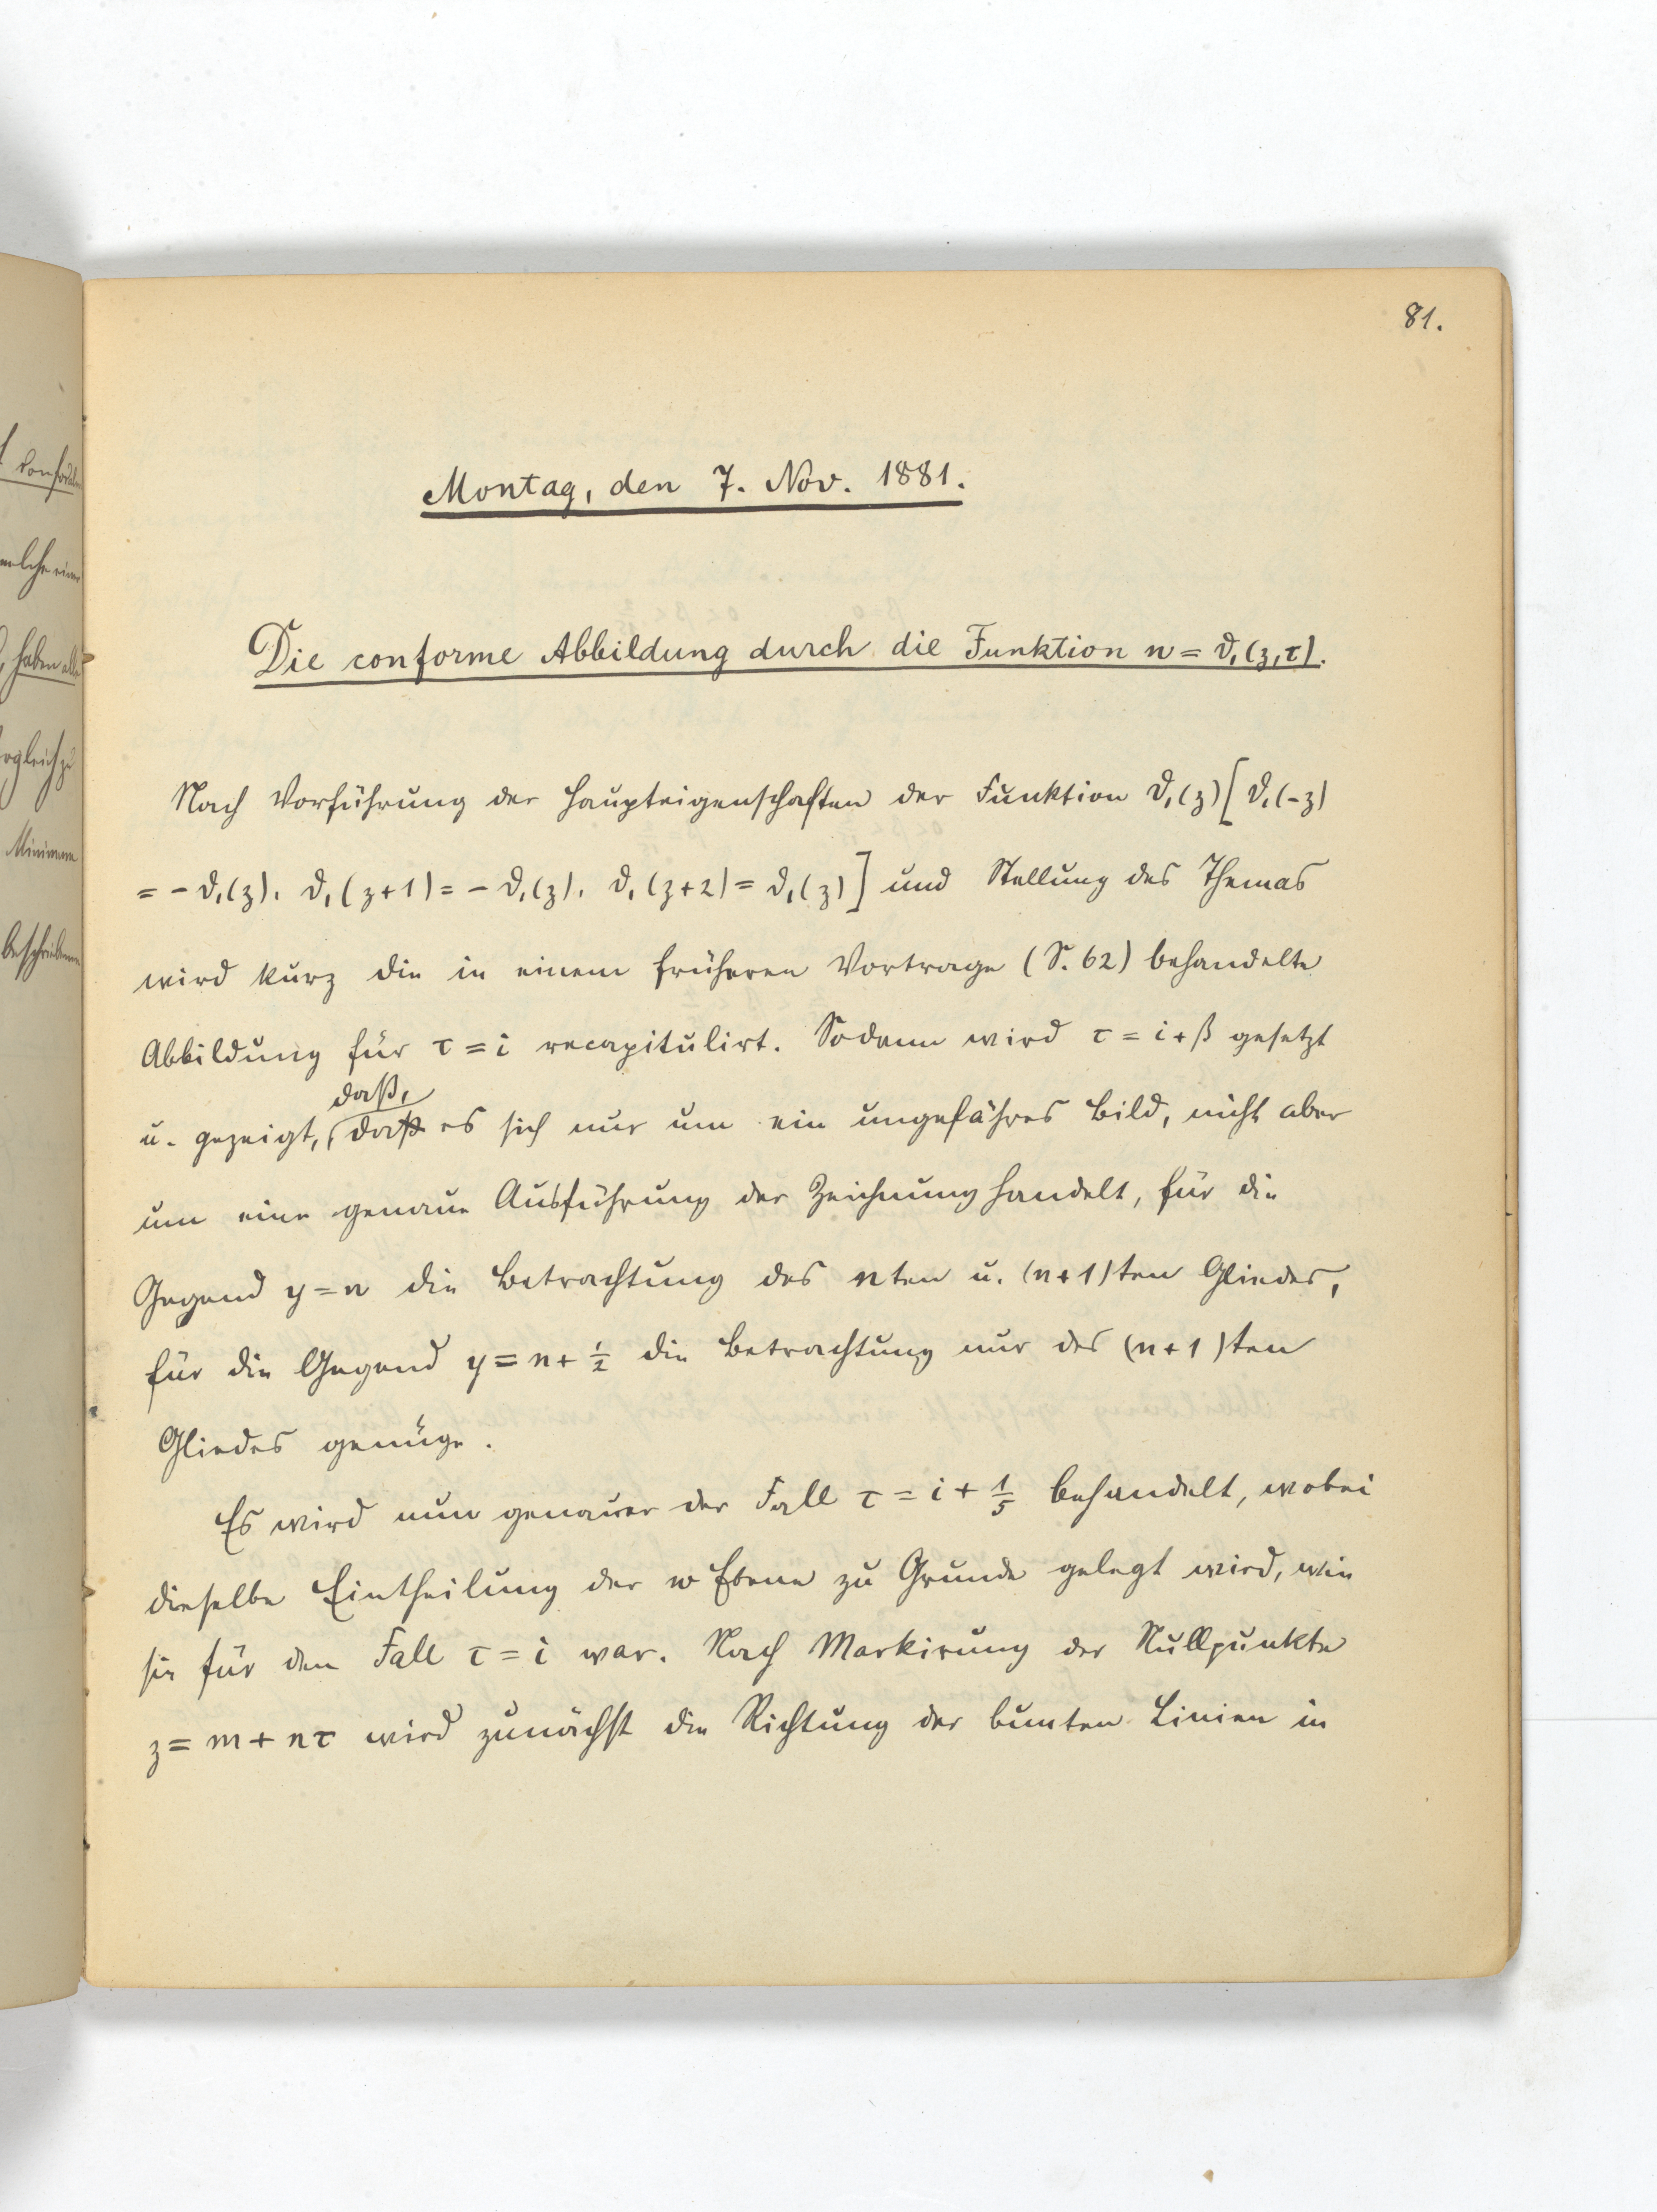 81.
Montag, den 7. Nov. 1881.
Die conforme Abbildung durch die Funktion w = ϑ₁(z,τ).
Nach Vorführung der Haupteigenschaften der Funktion ϑ₁(z) [ϑ₁(-z)
= - ϑ₁(z). ϑ₁(z+1) = - ϑ₁(z). ϑ₁(z+2) = ϑ₁(z)] und Stellung des Themas
wird kurz die in einem früheren Vortrage (S. 62) behandelte
Abbildung für τ = i recapitulirt. Sodann wird τ = i + β gesetzt
daß,
u. gezeigt, daß es sich nur um ein ungefähres Bild, nicht aber
um eine genaue Ausführung der Zeichnung handelt, für die
Gegend y = n die Betrachtung des nten u. (n+1)ten Gliedes,
für die Gegend y = n + ½ die Betrachtung nur des (n+1)ten
Gliedes genüge.
Es wird nun genauer der Fall τ = i + 1/5 behandelt, wobei
dieselbe Eintheilung der w Ebene zu Grunde gelegt wird, wie
sie für den Fall τ = i war. Nach Markirung der Nullpunkte
z = m + nτ wird zunächst die Richtung der bunten Linien in
welche einer
, haben alle
Minimum
beschriebenen